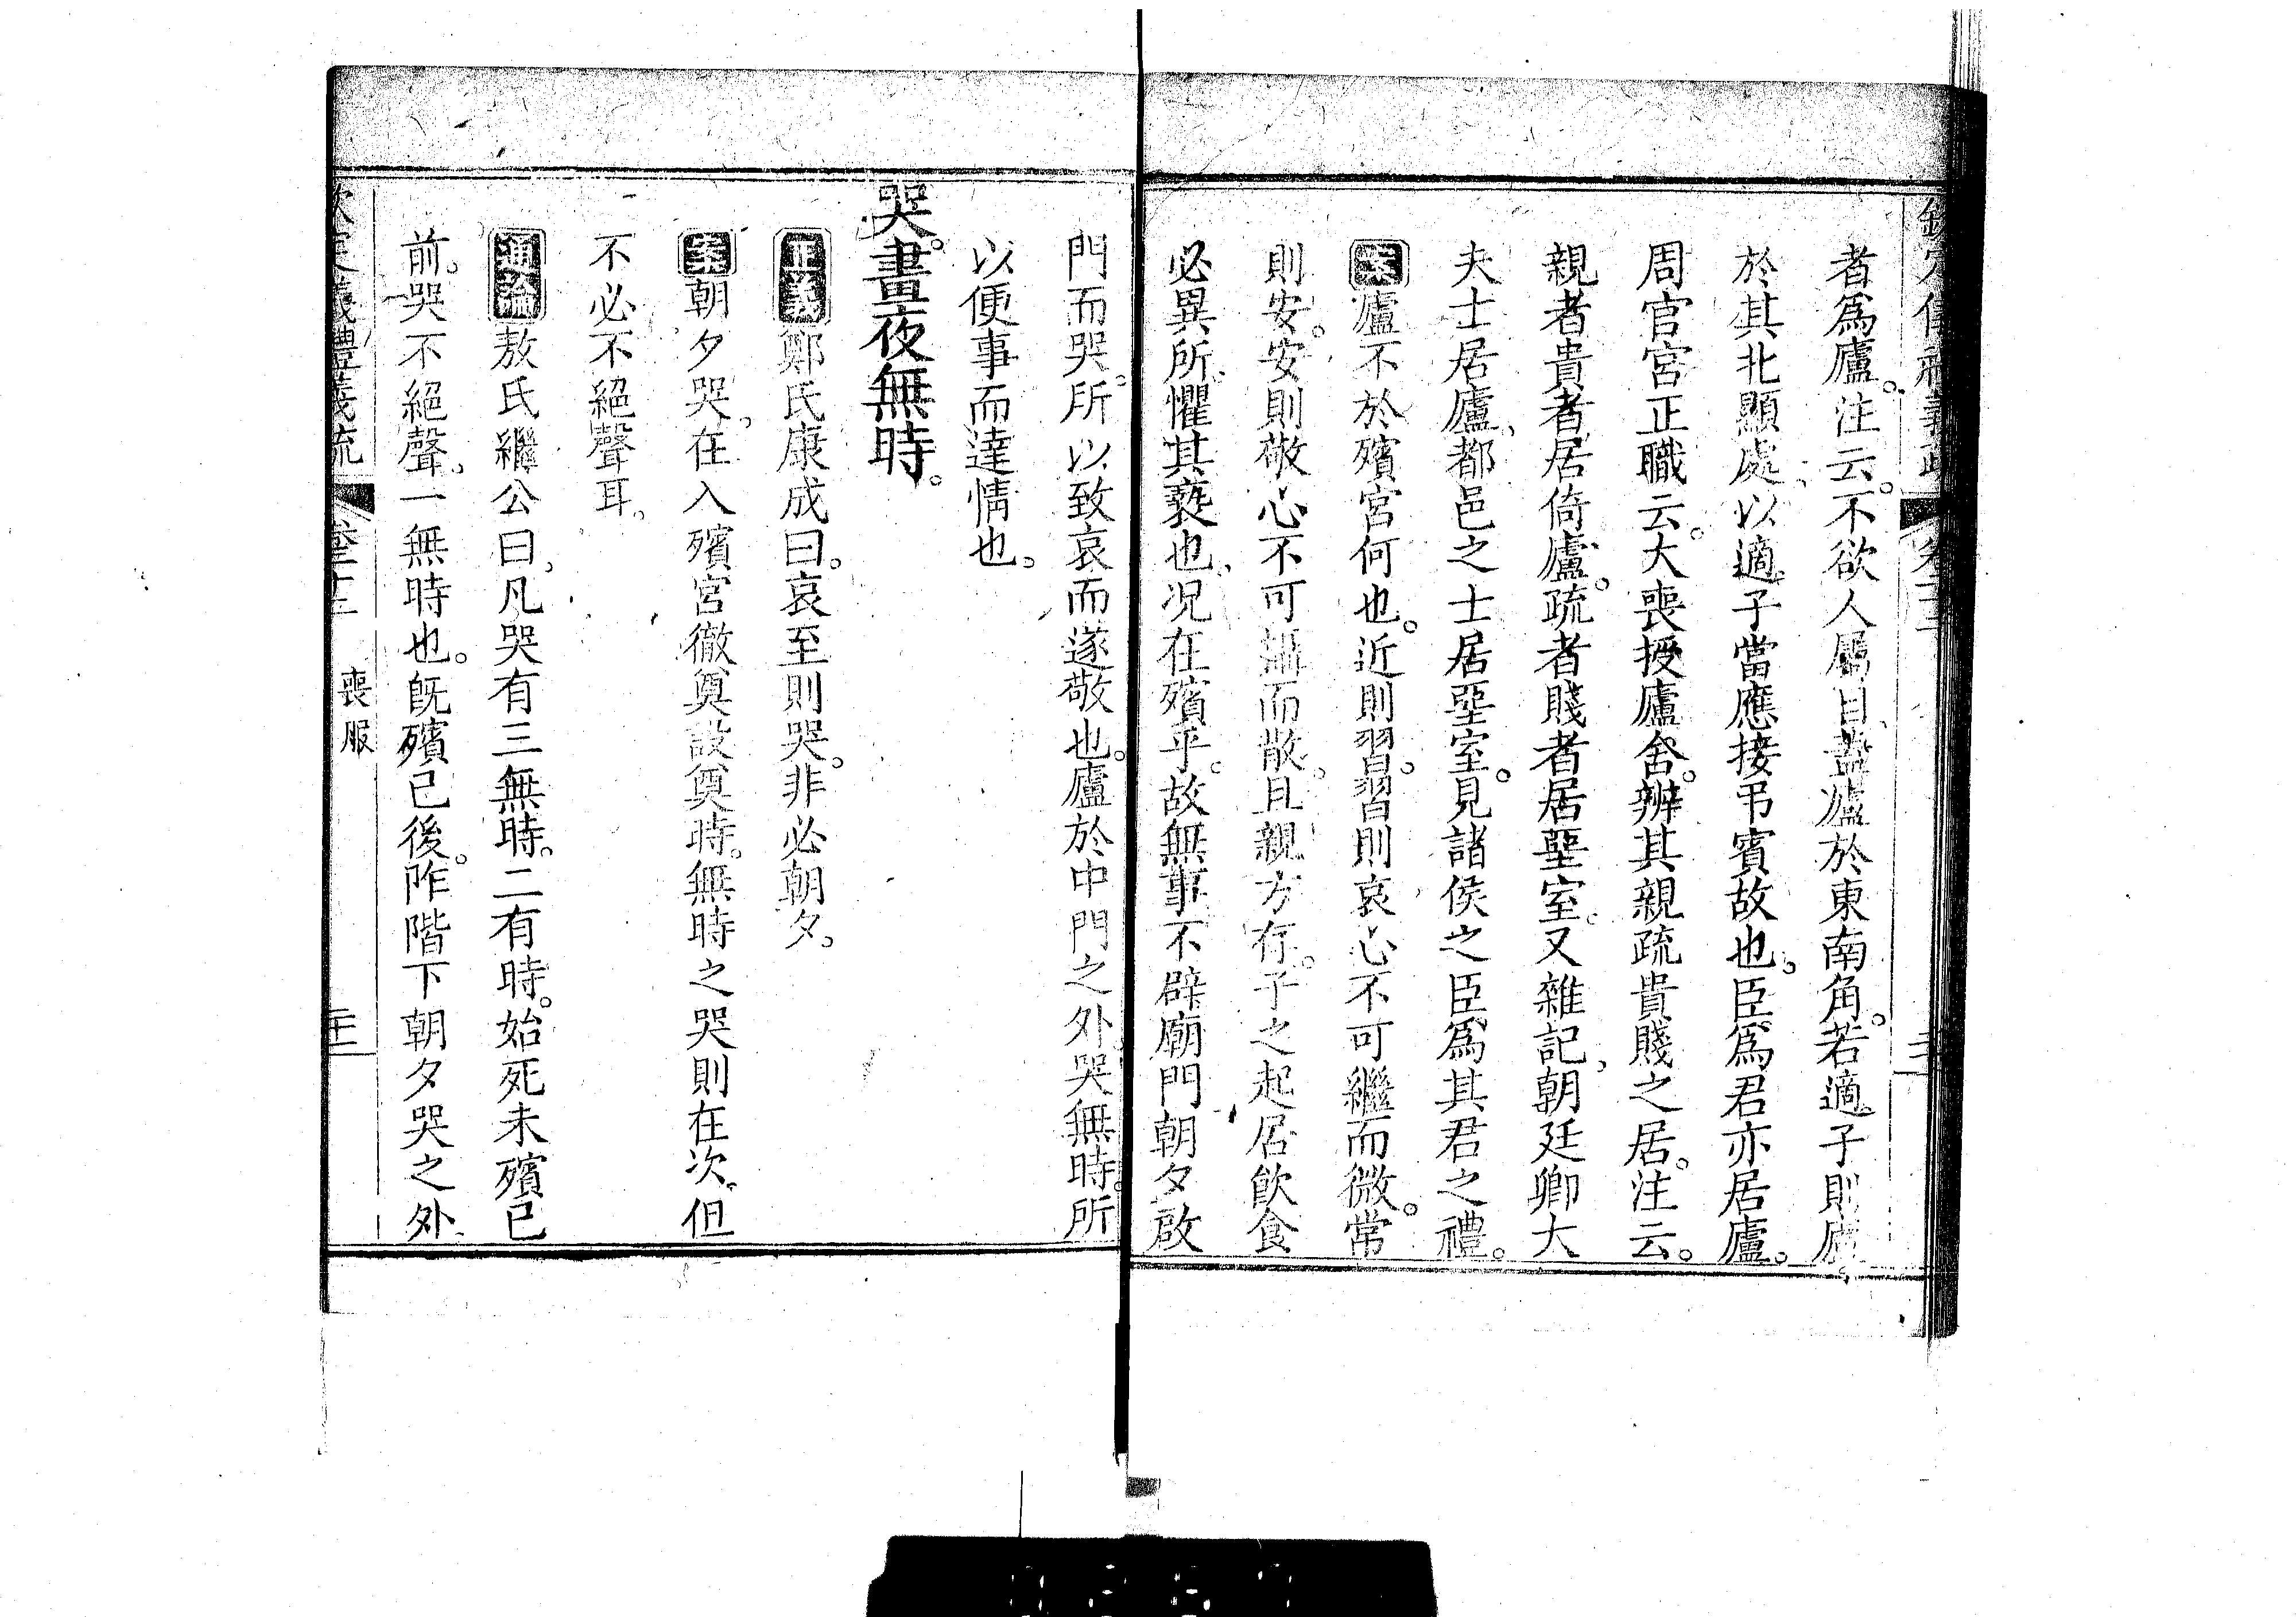 者爲廬。注云。不欲人屬目、蓋廬於東南角。若適子則廬
於其北顯處、以適子當應接弔賓故也。臣爲君亦居廬。
周官宮正職云。大喪授廬舍。辨其親疏貴賤之居。注云。
親者貴者居倚廬。疏者賤者居堊室。又雜記、朝廷卿大
夫士居廬、都邑之士居堊室。見諸侯之臣爲其君之禮。
案廬不於殯宮何也。近則習。習則哀心不可繼而微。常
則安。安則敬心不可攝而散。且親方存。子之起居飲食
必異所、懼其褻也、况在殯乎。故無事不辟廟門朝夕啟
門而哭。所以致哀而遂敬也。廬於中門之外、哭無時。所
以便事而達情也。
哭。晝夜無時。
正義鄭氏康成曰。哀至則哭。非必朝夕。
案朝夕哭、在入殯宮徹奠設奠時。無時之哭則在次。但
不必不絕聲耳。
通論敖氏繼公曰、凡哭有三無時。二有時。始死未殯已
前。哭不絕聲、一無時也。旣殯已後。阼階下朝夕哭之外、
欽定儀禮義疏
喪服